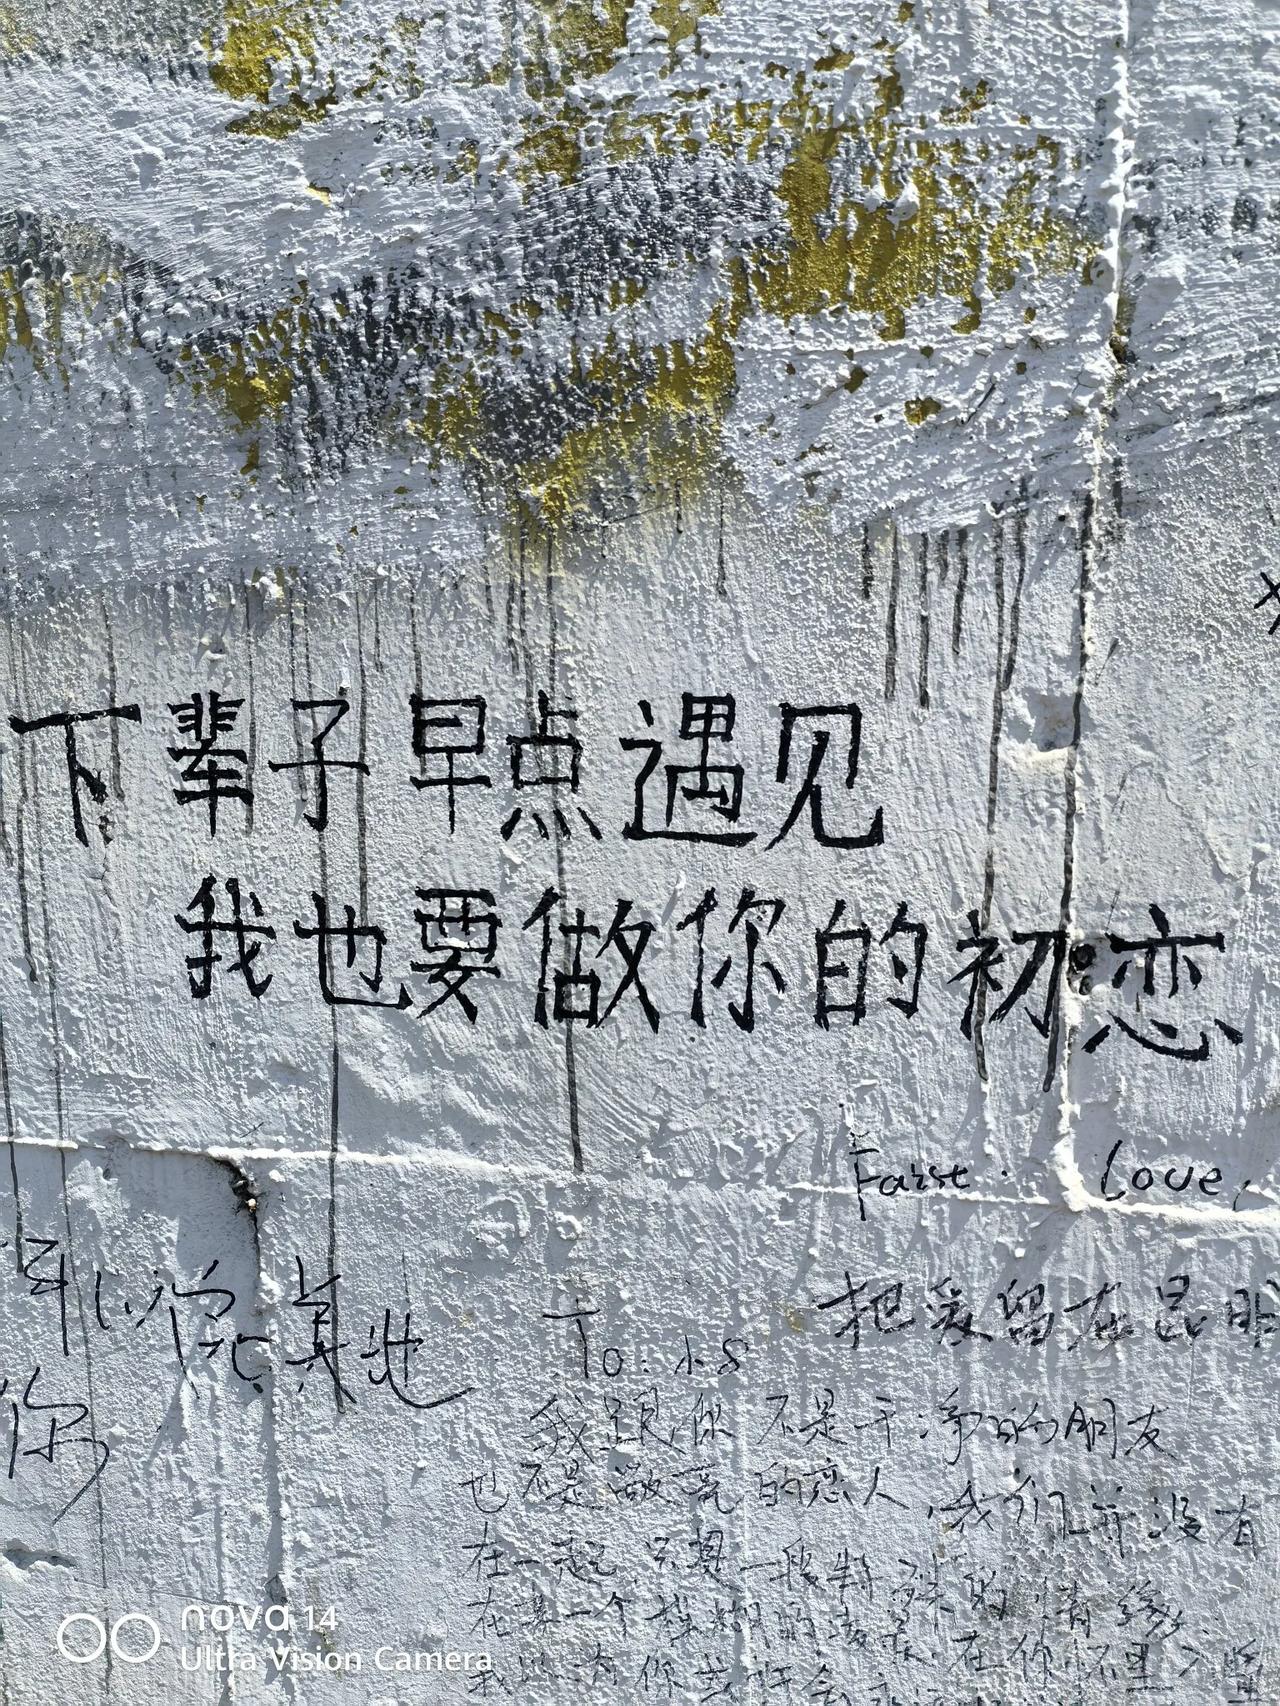 下辈子早点遇见
我也要做你的初恋
Farst. Love.
把爱留在昆明
你
To: 小8
我跟你 不是干净的朋友
也不是敞亮的恋人,我们并没有
在一起,只是一段特殊的情缘
在某一个模糊的 在你怀里
我 你
nova 14
Ultra Vision Camera